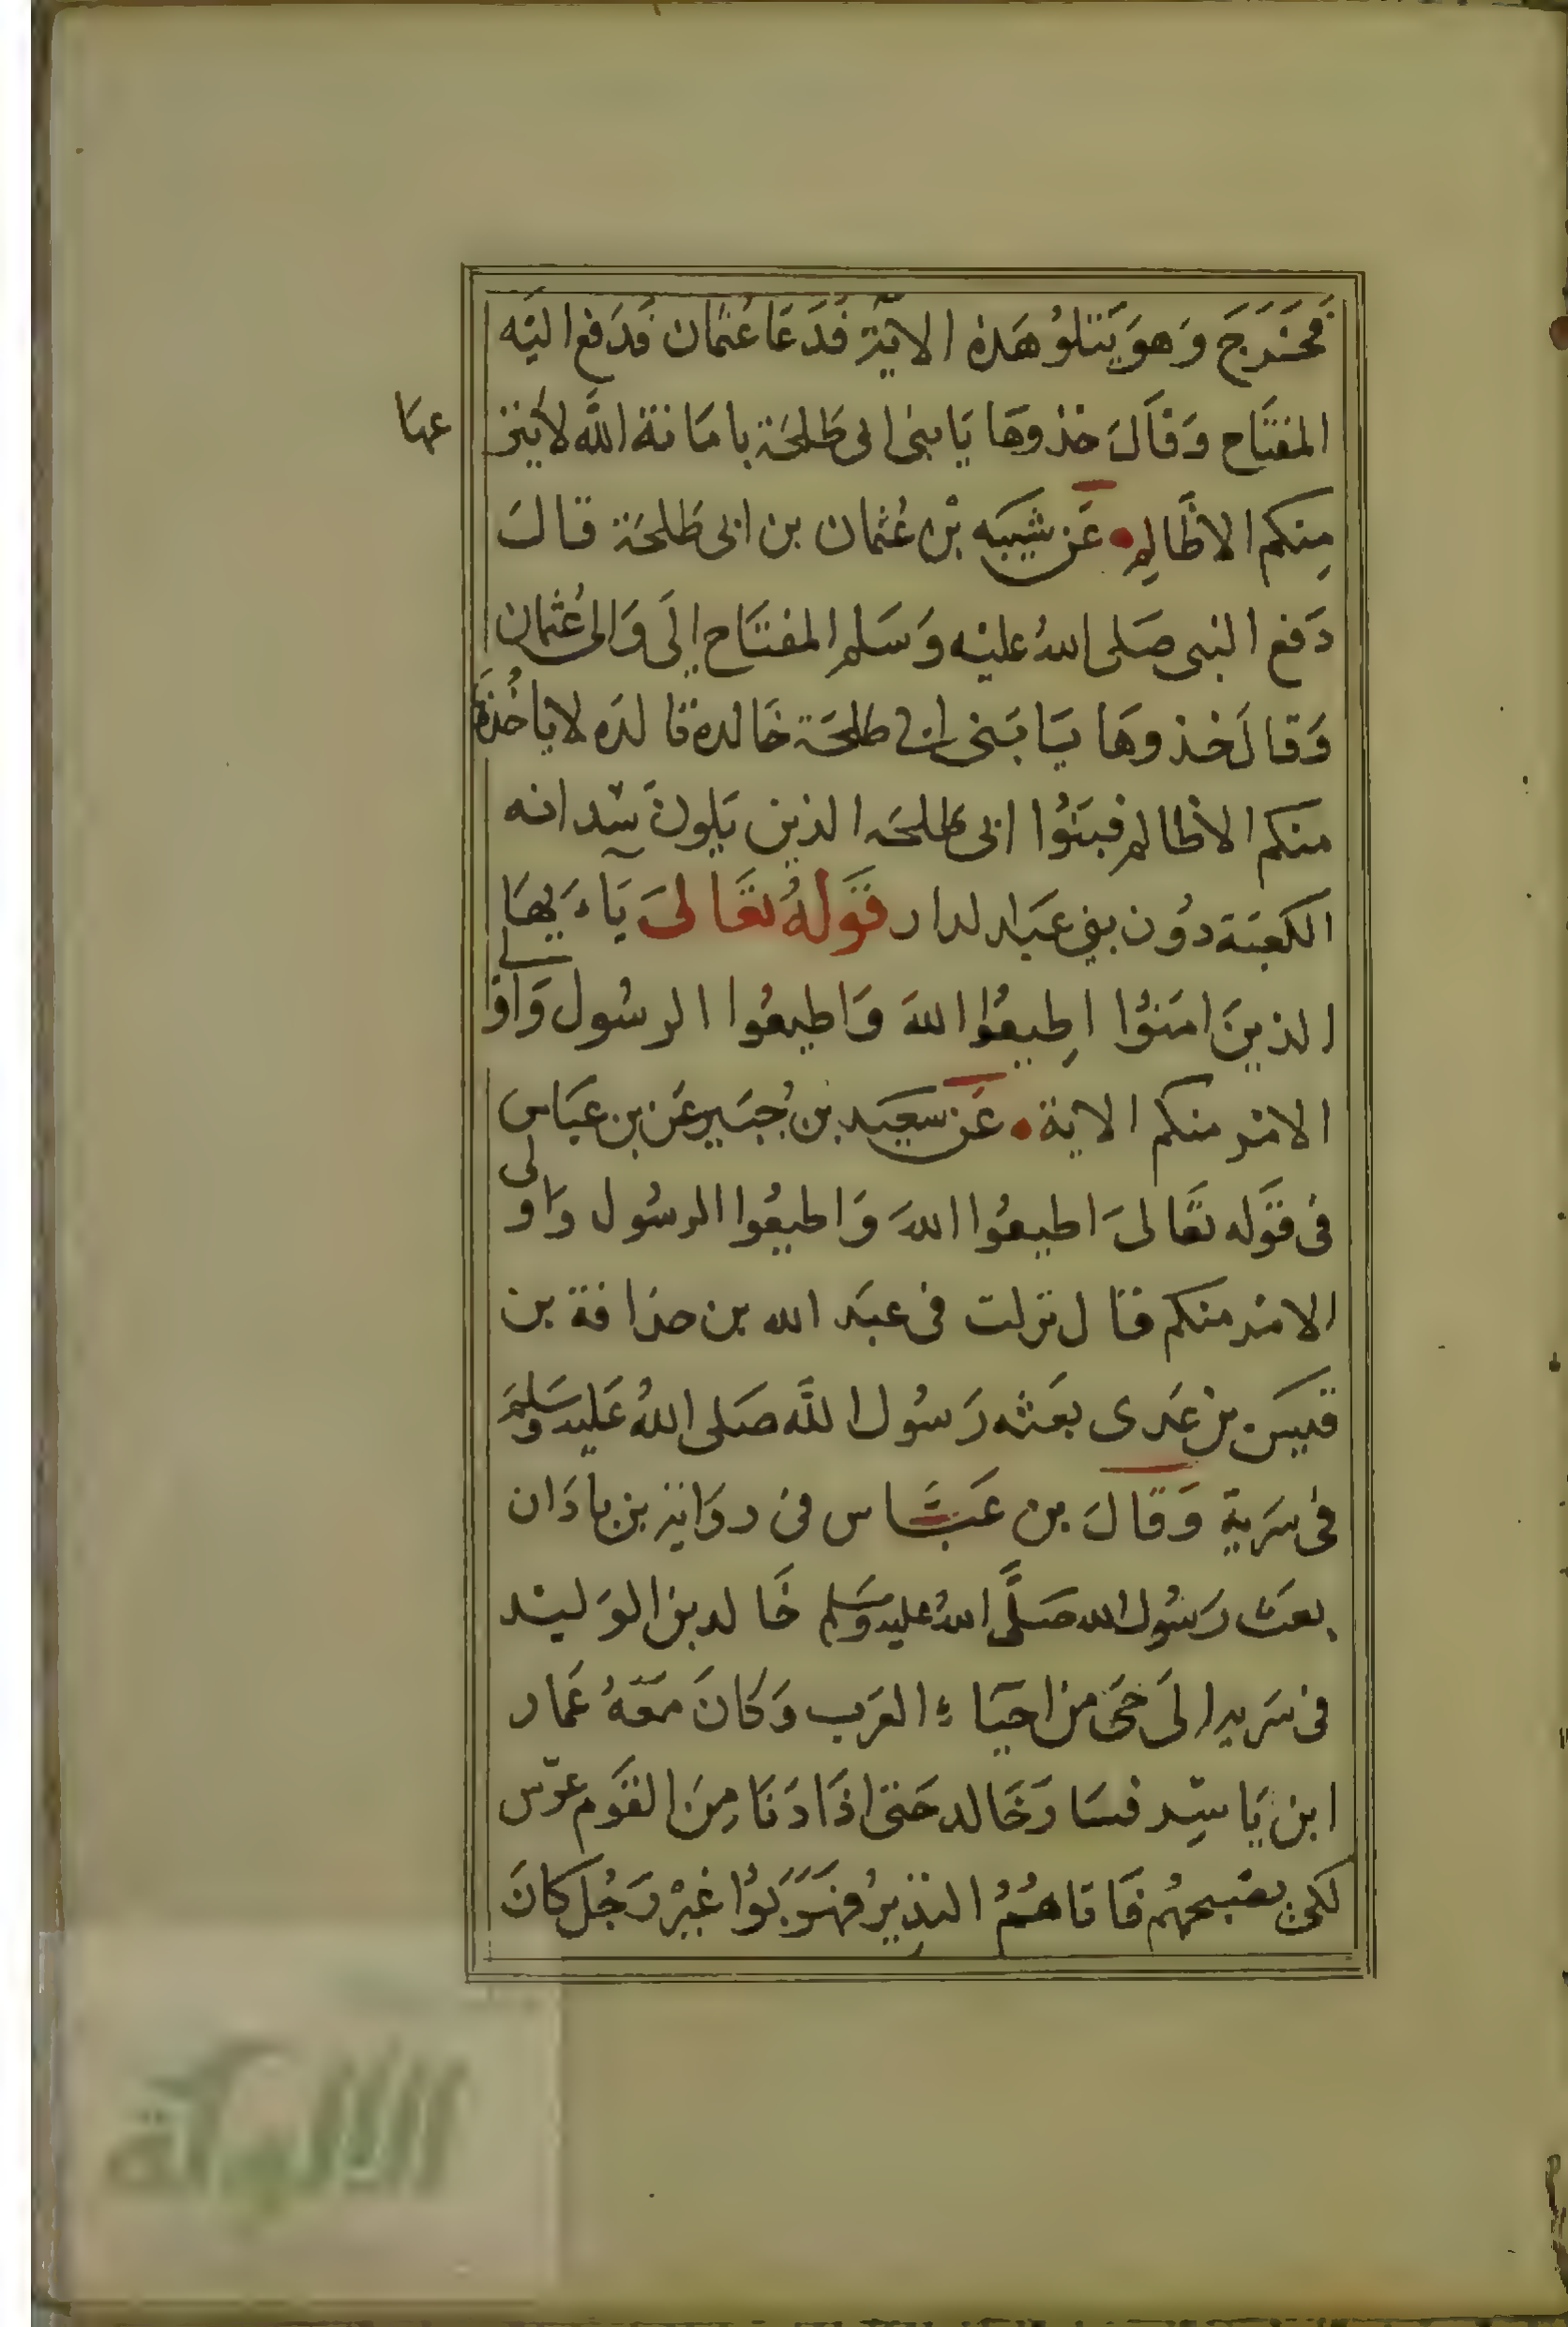 فَخَرَجَ وَهوَ يَتلوُ هَذه الايَة فَدَعَا عُثمان فَدَفع اليَه
المفتَاح وَقاَلَ خذوهَا يَا بنى ابى طَلحَة بامَانة اللَّه لا ينز عهَا
مِنكم الاظَالم عَن شَيبَه بْن عُثمان بن ابى طَلحَة قالَ
دَفع النبى صَلى اللهُ عليْه وَسَلم المفتَاح اِلَى وَالى عُثمان
وَقالَ خذوهَا يَا بَنى ابى طلحَة خَالدة تالدَه لا ياخُذهَا
منكم الاظالم فبَنُوا ابى طلحَه الذين يَلونَ سْدانه
الكعبَة دوُن بنى عبَد الدار قَولهُ تعَالىَ يَاءَيهَا
الذينَ امَنوُا اِطيعُوا اللهَ وَاطيعُوا الرسُول وَاولى
الامْر منكم الاية عَن سَعيَد بن جُبَير عَن بن عبَاس
فى قَوله تعَالىَ اطيعُوا اللهَ وَاطيعُوا الرسُول وَاولى
الامْر منكم قال نزلت فى عبَد الله بن حذافة بن
قيسَ بن عَدى بعَثه رَسُول اللَّه صَلى اللهُ عَليه وَسَلمَ
فى سَرية وَقالَ بن عَبَّاس فى رِوَاية بن باذان
بعَث رَسُول الله صَلَّى اللهُ عليه وسَلم خَالد بن الوَليْد
فى سَريه الَى حَى من احيَاءِ العرَب وَكانَ مَعَهُ عَمار
ابن يَاسِر فسَارَ خَالد حَتى اذَا دَنَا مِنَ القَوم عرّس
لكى يصَبحهُم فَاتاهُمُ النذِيرُ فهَرَبَوُا غَيْر رَجُل كانَ
الألوكة